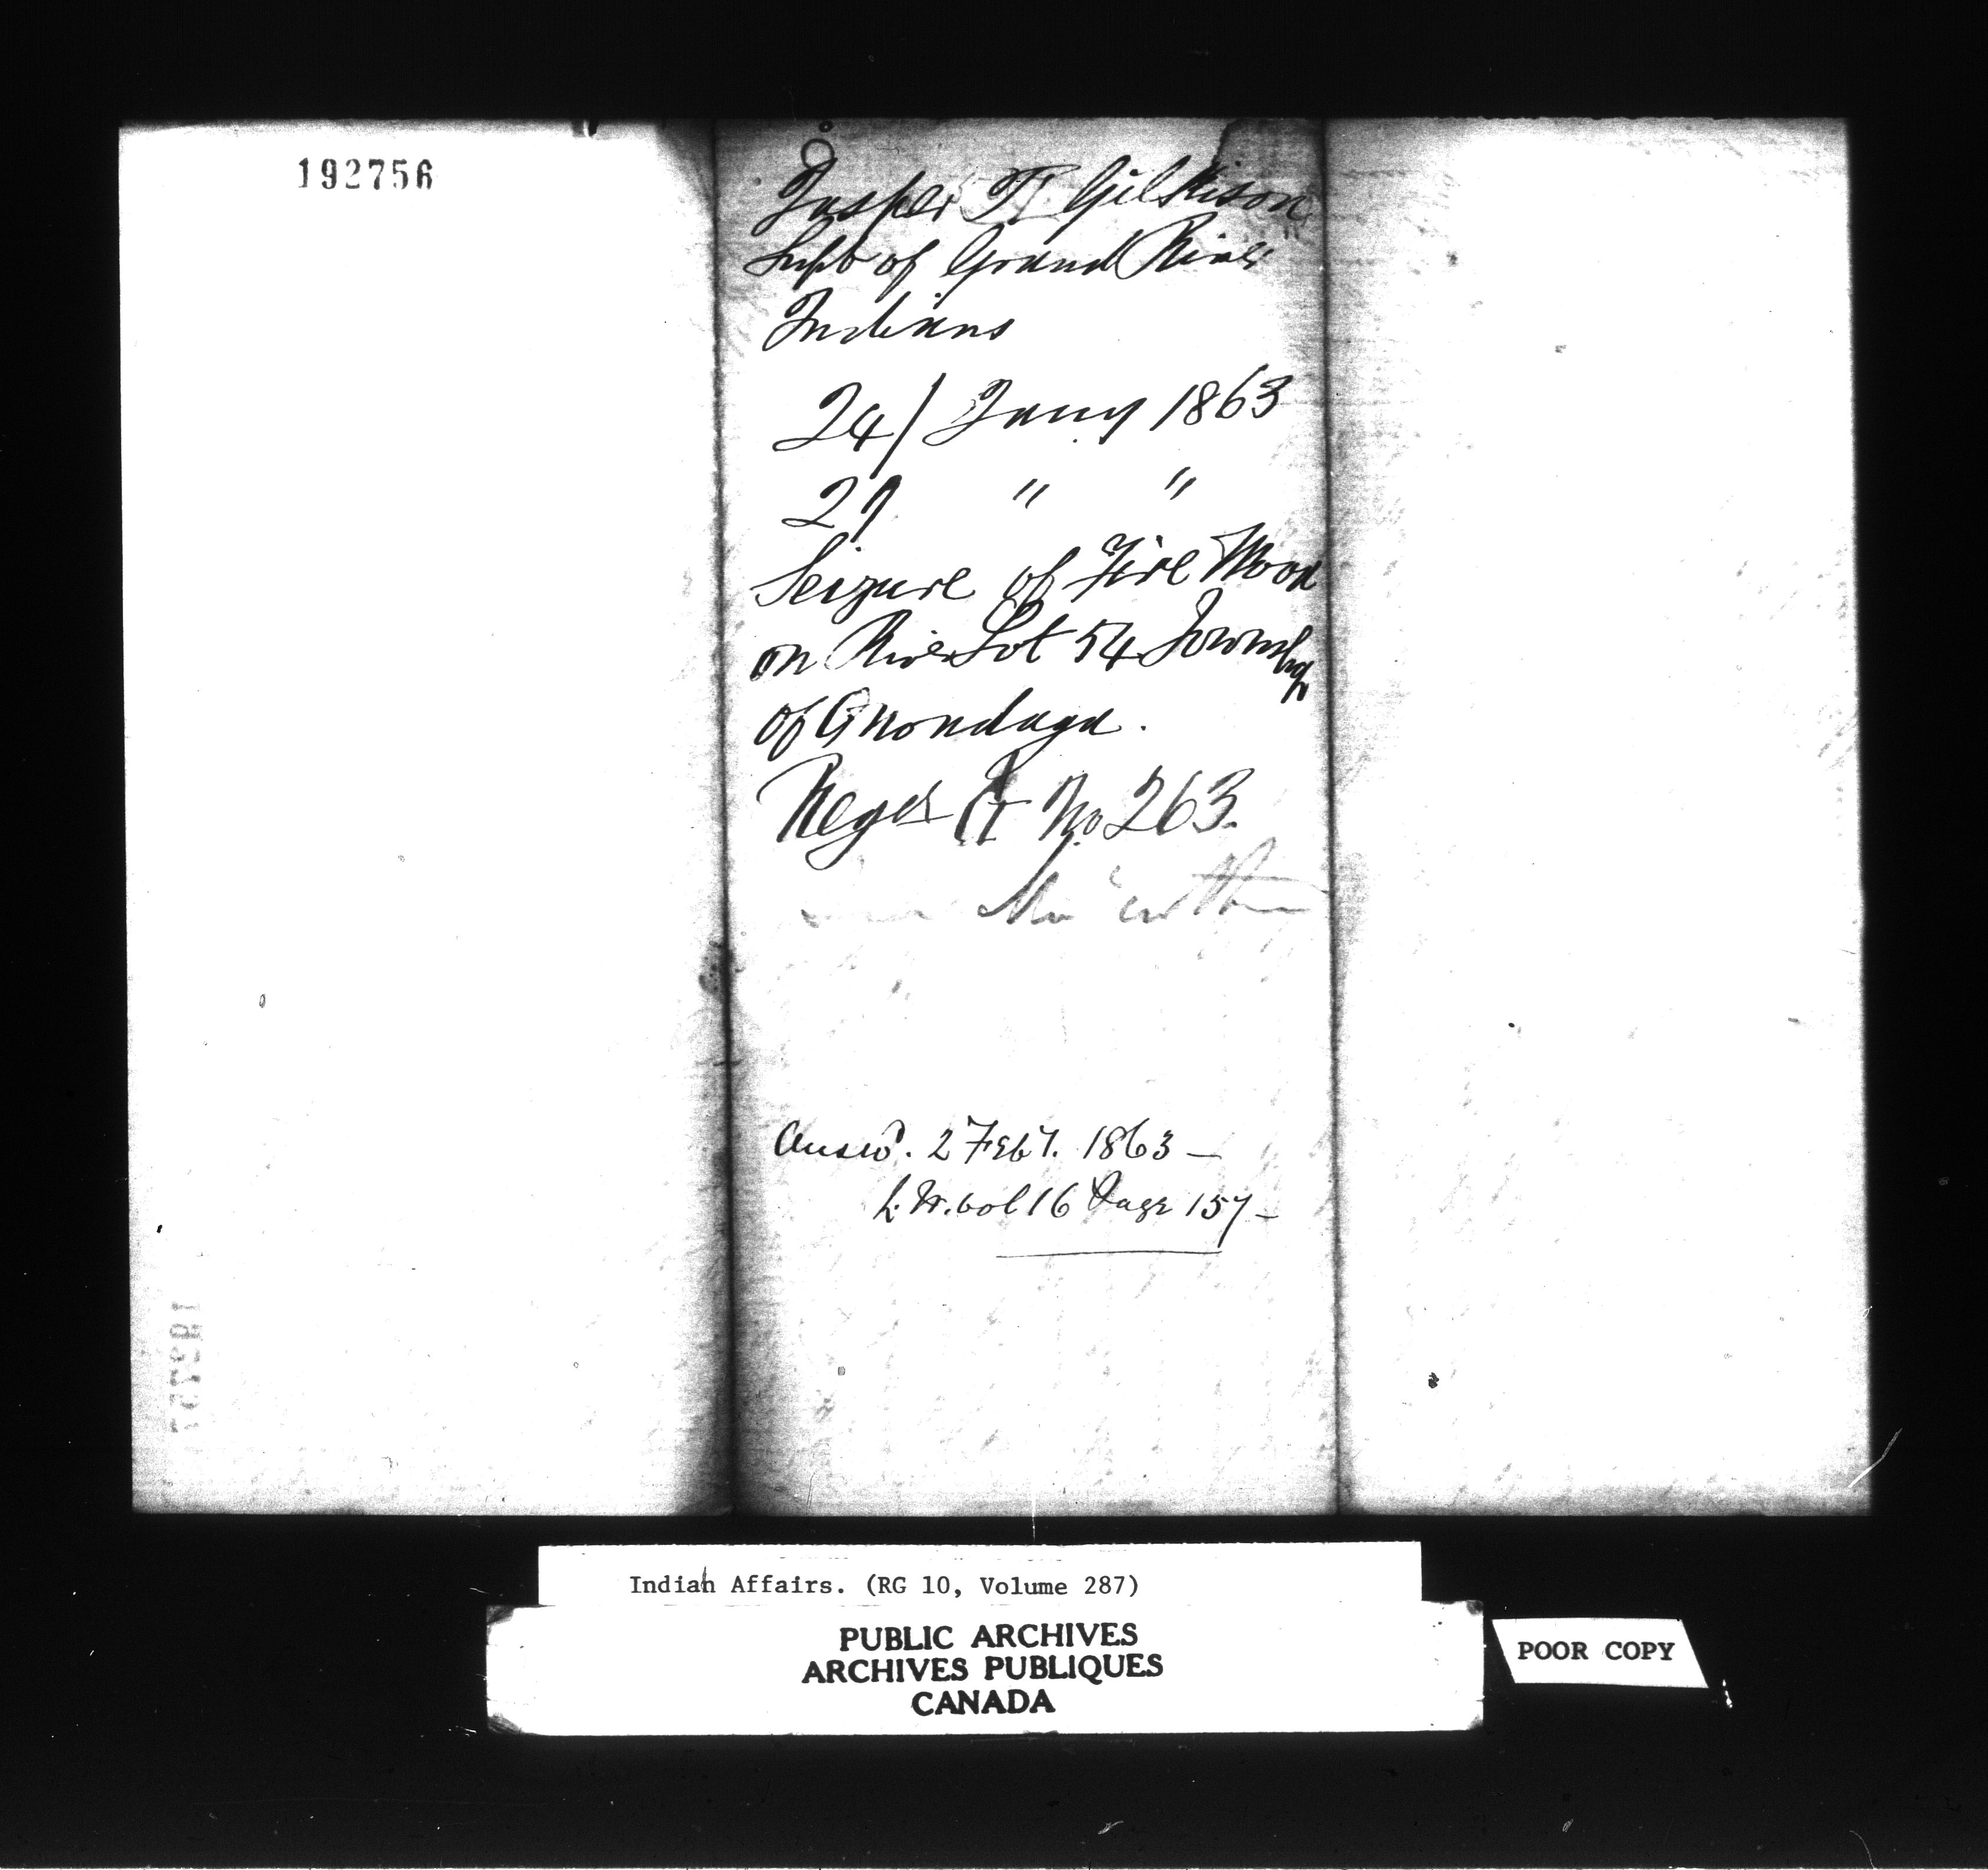 192756
Jasper T Gilkison
Supt of Grand River
Indians
24/ Jany 1863
27 " "
Seizure of Fire Wood
on River Lot 54 Township
of Onondaga.
Regd A No 263.
Answd. 2 Feby. 1863 —
L. W. vol 16 Page 157 —
Indian Affairs. (RG 10, Volume 287)
PUBLIC ARCHIVES
ARCHIVES PUBLIQUES
CANADA
POOR COPY